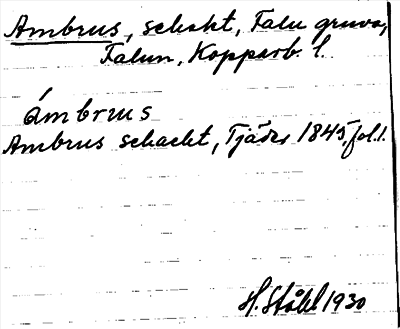 Ambrus, schakt, Falu gruva,
Falun, Kopparb. l.
ámbrus
Ambrus schackt, Tjäder 1845, fol. 1.
H. Ståhl 1930